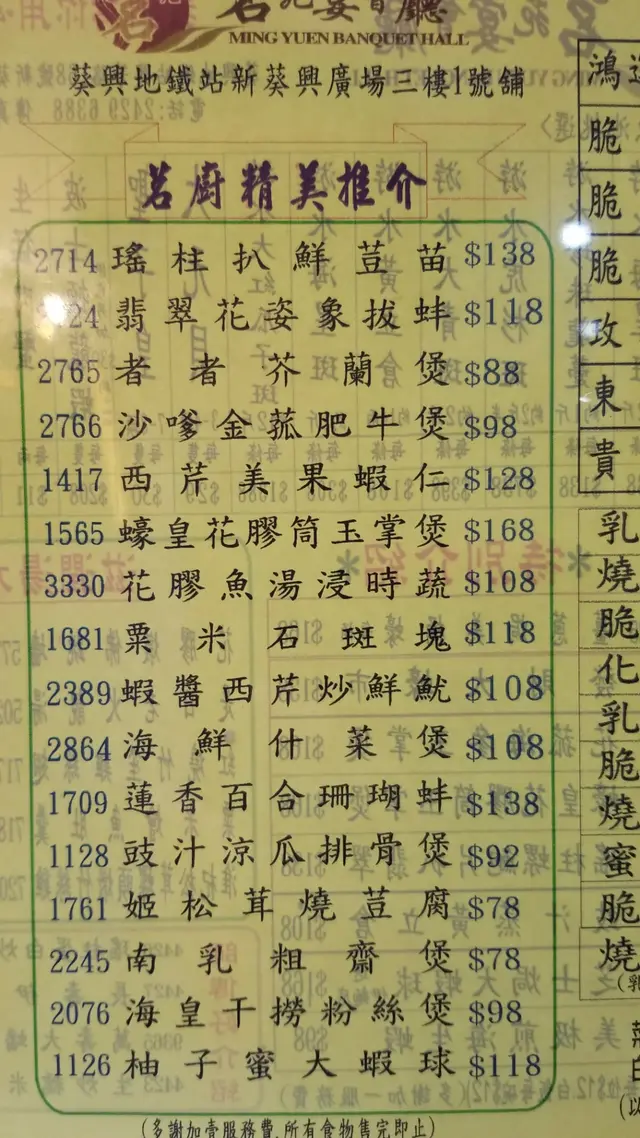 茗苑宴會廳
MING YUEN BANQUET HALL
葵興地鐵站新葵興廣場三樓1號舖
茗廚精美推介
2714 瑤柱扒鮮荳苗 $138
24 翡翠花姿象拔蚌 $118
2765 者者芥蘭煲 $88
2766 沙嗲金菰肥牛煲 $98
1417 西芹美果蝦仁 $128
1565 蠔皇花膠筒玉掌煲 $168
3330 花膠魚湯浸時蔬 $108
1681 粟米石斑塊 $118
2389 蝦醬西芹炒鮮魷 $108
2864 海鮮什菜煲 $108
1709 蓮香百合珊瑚蚌 $138
1128 豉汁涼瓜排骨煲 $92
1761 姬松茸燒荳腐 $78
2245 南乳粗齋煲 $78
2076 海皇干撈粉絲煲 $98
1126 柚子蜜大蝦球 $118
(多謝加壹服務費,所有食物售完即止)
鴻
脆
脆
脆
玫
東
貴
乳
燒
脆
化
乳
脆
燒
蜜
脆
燒